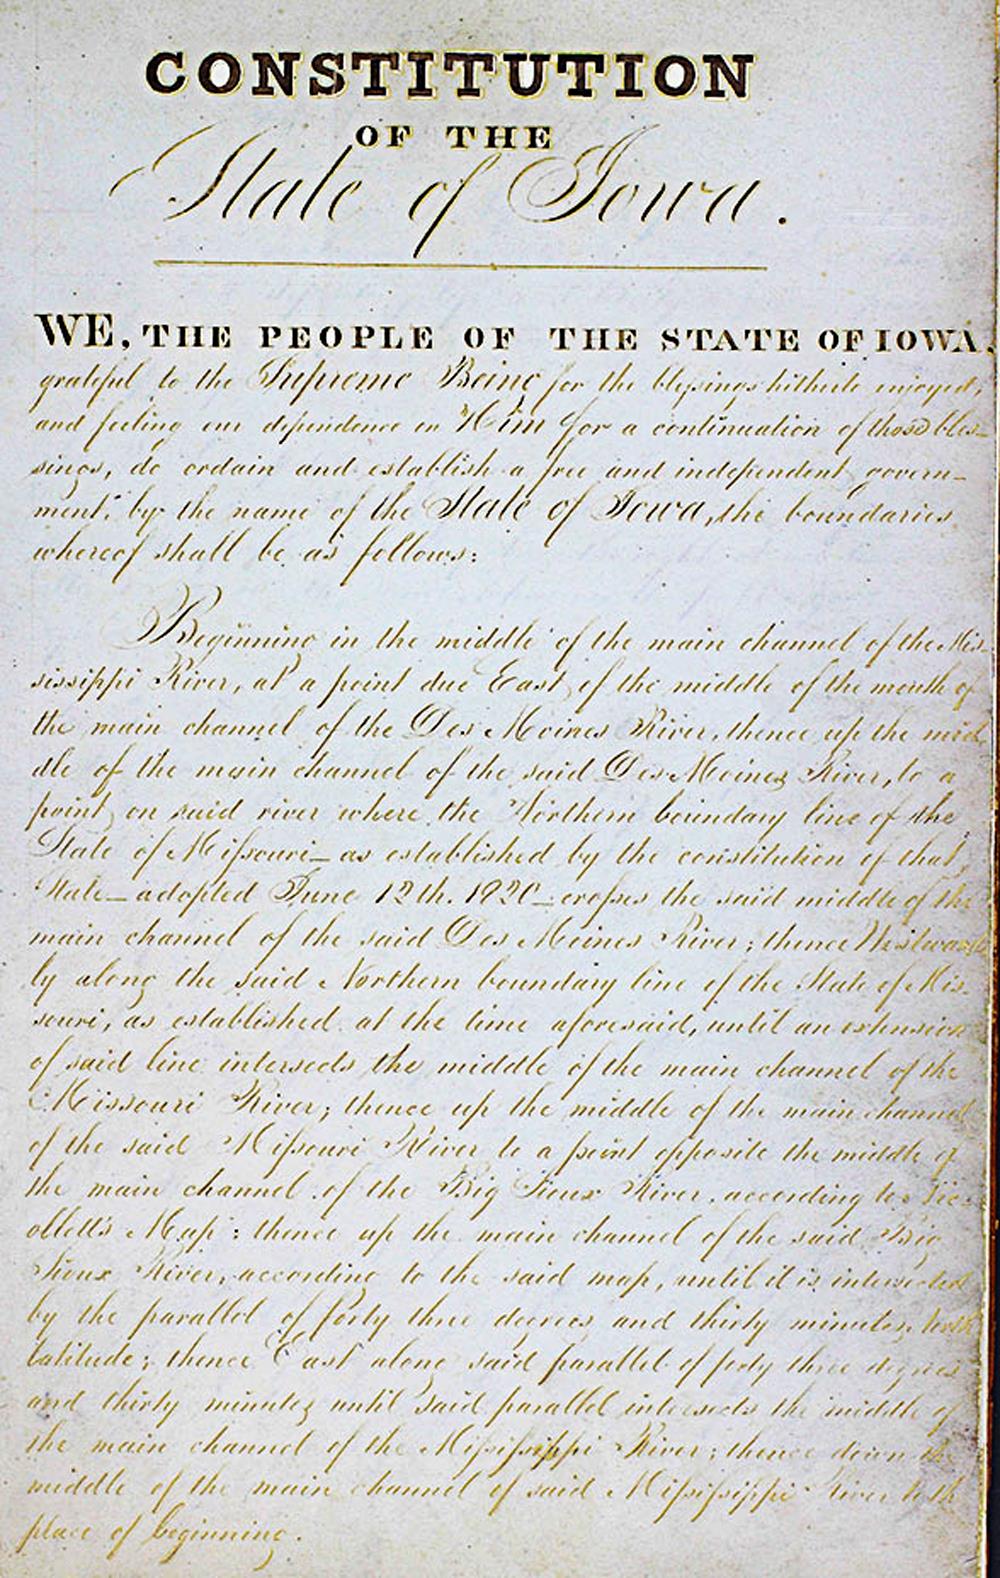 CONSTITUTION
OF THE
State of Iowa.
WE, THE PEOPLE OF THE STATE OF IOWA,
grateful to the Supreme Being for the blessings hitherto enjoyed,
and feeling our dependence on Him for a continuation of those bles-
sings, do ordain and establish a free and independent govern-
ment, by the name of the State of Iowa, the boundaries
whereof shall be as follows:
Beginning in the middle of the main channel of the Mis-
sissippi River, at a point due East of the middle of the mouth of
the main channel of the Des Moines River, thence up the mid
dle of the main channel of the said Des Moines River, to a
point on said river where the Northern boundary line of the
State of Missouri— as established by the constitution of that
State— adopted June 12th. 1820— crosses the said middle of the
main channel of the said Des Moines River; thence Westward
ly along the said Northern boundary line of the State of Mis-
souri, as established at the time aforesaid, until an extension
of said line intersects the middle of the main channel of the
Missouri River; thence up the middle of the main channel
of the said Missouri River to a point opposite the middle of
the main channel of the Big Sioux River, according to Nic-
ollett's Map; thence up the main channel of the said Big
Sioux River, according to the said map, until it is intersected
by the parallel of forty three degrees and thirty minutes North
latitude; thence East along said parallel of forty three degrees
and thirty minutes until said parallel intersects the middle of
the main channel of the Mississippi River; thence down the
middle of the main channel of said Mississippi River to the
place of beginning.